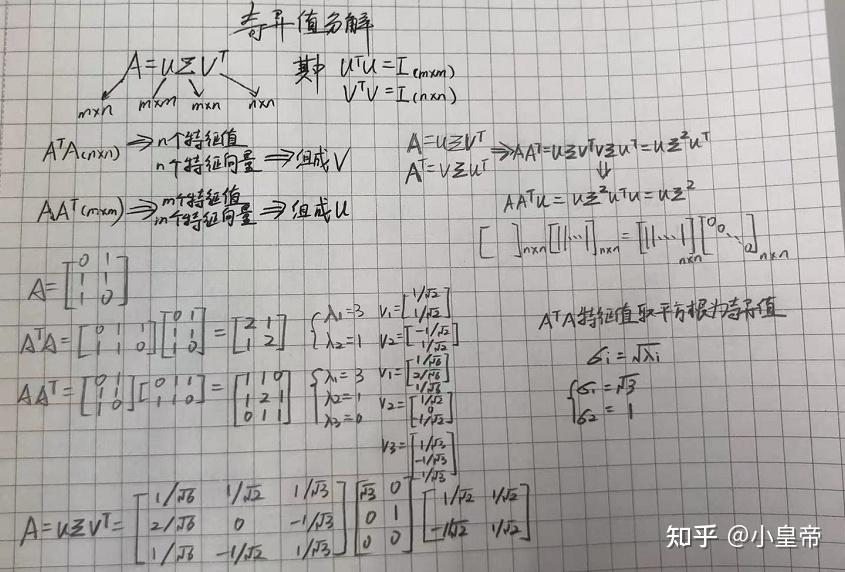 奇异值分解
A=UΣV^T 其中 U^TU=I(m×m)
V^TV=I(n×n)
m×n m×m m×n n×n
A^TA(n×n) ⇒ n个特征值
n个特征向量 ⇒ 组成V
AA^T(m×m) ⇒ m个特征值
m个特征向量 ⇒ 组成U
A=UΣV^T ⇒ AA^T=UΣV^TVΣU^T=UΣ²U^T
A^T=VΣU^T ⇓
AA^TU=UΣ²U^TU=UΣ²
[ ]n×n [||···|]n×n = [||···|]n×n [0 0 ⋱ 0]n×n
A=[0 1; 1 1; 1 0]
A^TA=[0 1 1; 1 1 0][0 1; 1 1; 1 0]=[2 1; 1 2] {λ1=3 λ2=1 V1=[1/√2; 1/√2] V2=[-1/√2; 1/√2]
AA^T=[0 1; 1 1; 1 0][0 1 1; 1 1 0]=[1 1 0; 1 2 1; 0 1 1] {λ1=3 λ2=1 λ3=0 V1=[1/√6; 2/√6; 1/√6] V2=[1/√2; 0; -1/√2]
V3=[1/√3; -1/√3; 1/√3]
A^TA特征值取平方根为奇异值
σi=√λi
{σ1=√3
σ2=1
A=UΣV^T=[1/√6 1/√2 1/√3; 2/√6 0 -1/√3; 1/√6 -1/√2 1/√3][√3 0; 0 1; 0 0][1/√2 1/√2; -1/√2 1/√2]
知乎 @小皇帝